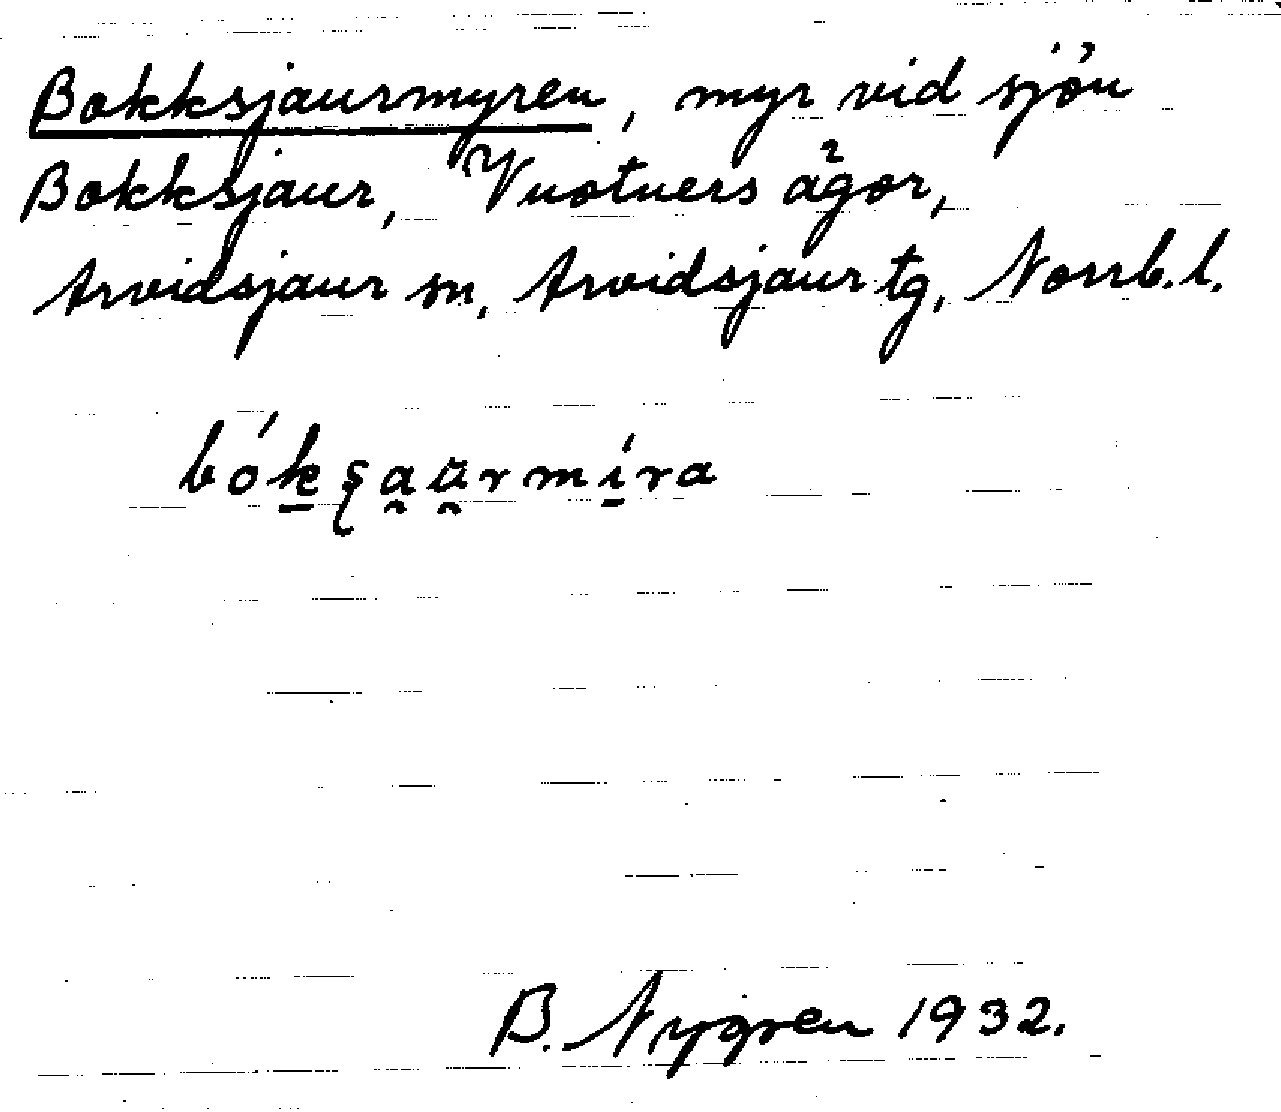 Bokksjaurmyren, myr vid sjön
Bokksjaur, Vuotners ägor,
Arvidsjaur sn, Arvidsjaur tg, Norrb.l.
bók̲ʂa̯u̯rmí̲ra
B. Nygren 1932.